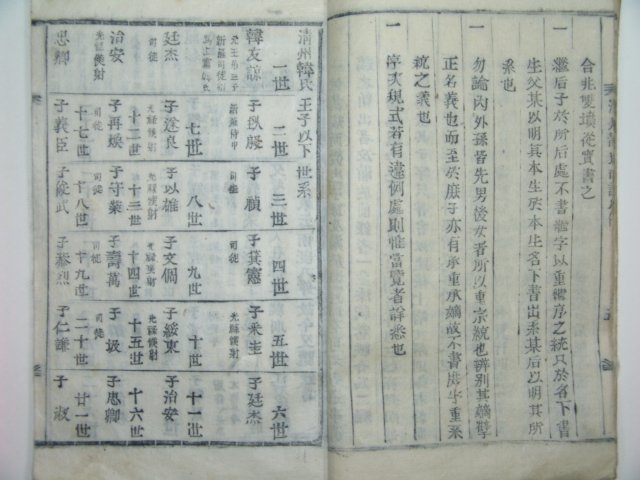 合兆雙墳從實書之
一 繼后子於所后處不書繼字以重繼序之統只於名下書
生父某以明其本生於本生名下書出系某后以明其所
系也
一 勿論內外孫皆先男後女者所以重宗統也辨別其嫡孼
正名義也而至於庶子亦有承重承嫡故不書庶字重系
統之義也
一 序次現式若有違例處則惟當覽者詳悉也
清州韓氏王子以下世系
一世 二世 三世 四世 五世 六世
韓友諒 子臥龍 子顓 子箕憲 子釆主 子廷杰
元王弟三子 新羅侍中 司徒 司徒 光祿僕射
七世 八世 九世 十世 十一世
廷杰 子遂良 子以雄 子文倜 子綬東 子治安
司徒 光祿僕射 光祿僕射 光祿僕射
十二世 十三世 十四世 十五世 十六世
治安 子再煥 子守業 子壽萬 子圾 子忠卿
光祿僕射 司徒 司徒
十七世 十八世 十九世 二十世 廿一世
忠卿 子義臣 子 武 子 烈 子仁謙 子淑